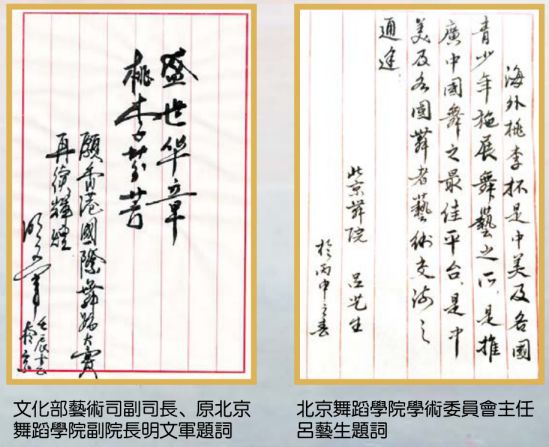 盛世华章
桃李芬芳
願香港國際舞蹈大賽
再鑄輝煌
明文軍
壬辰
於京
文化部藝術司副司長、原北京
舞蹈學院副院長明文軍題詞
海外桃李杯是中美及各國
青少年施展舞藝之所，是推
廣中國舞之最佳平台，是中
美及各國舞者藝術交流之
通途。
北京舞院 呂艺生
於丙申之春
北京舞蹈學院學術委員會主任
呂藝生題詞